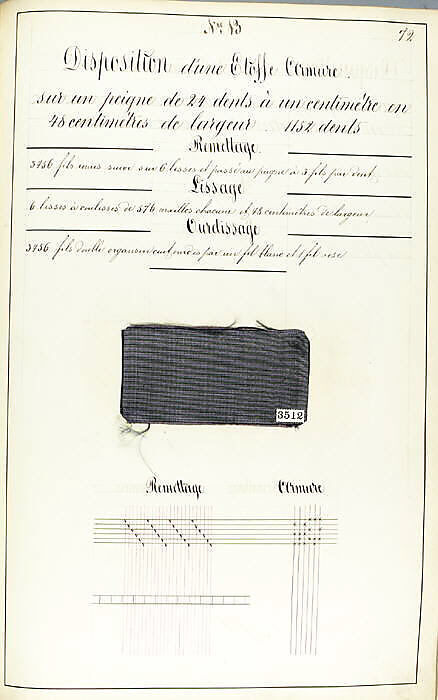 Nº 13
72
Disposition d'une Etoffe Armure.
sur un peigne de 24 dents à un centimètre en
48 centimètres de largeur 1152 dents
Remettage
3456 fils suivi sur 6 lisses et passé au peigne à 3 fils par dent
Lissage
6 lisses à coulisses de 576 mailles chacune et 48 centimètres de largeur
Ourdissage
3456 fils double organsin cuit ourdis par un fil blanc et 1 fil rose
3512
Remettage
Armure